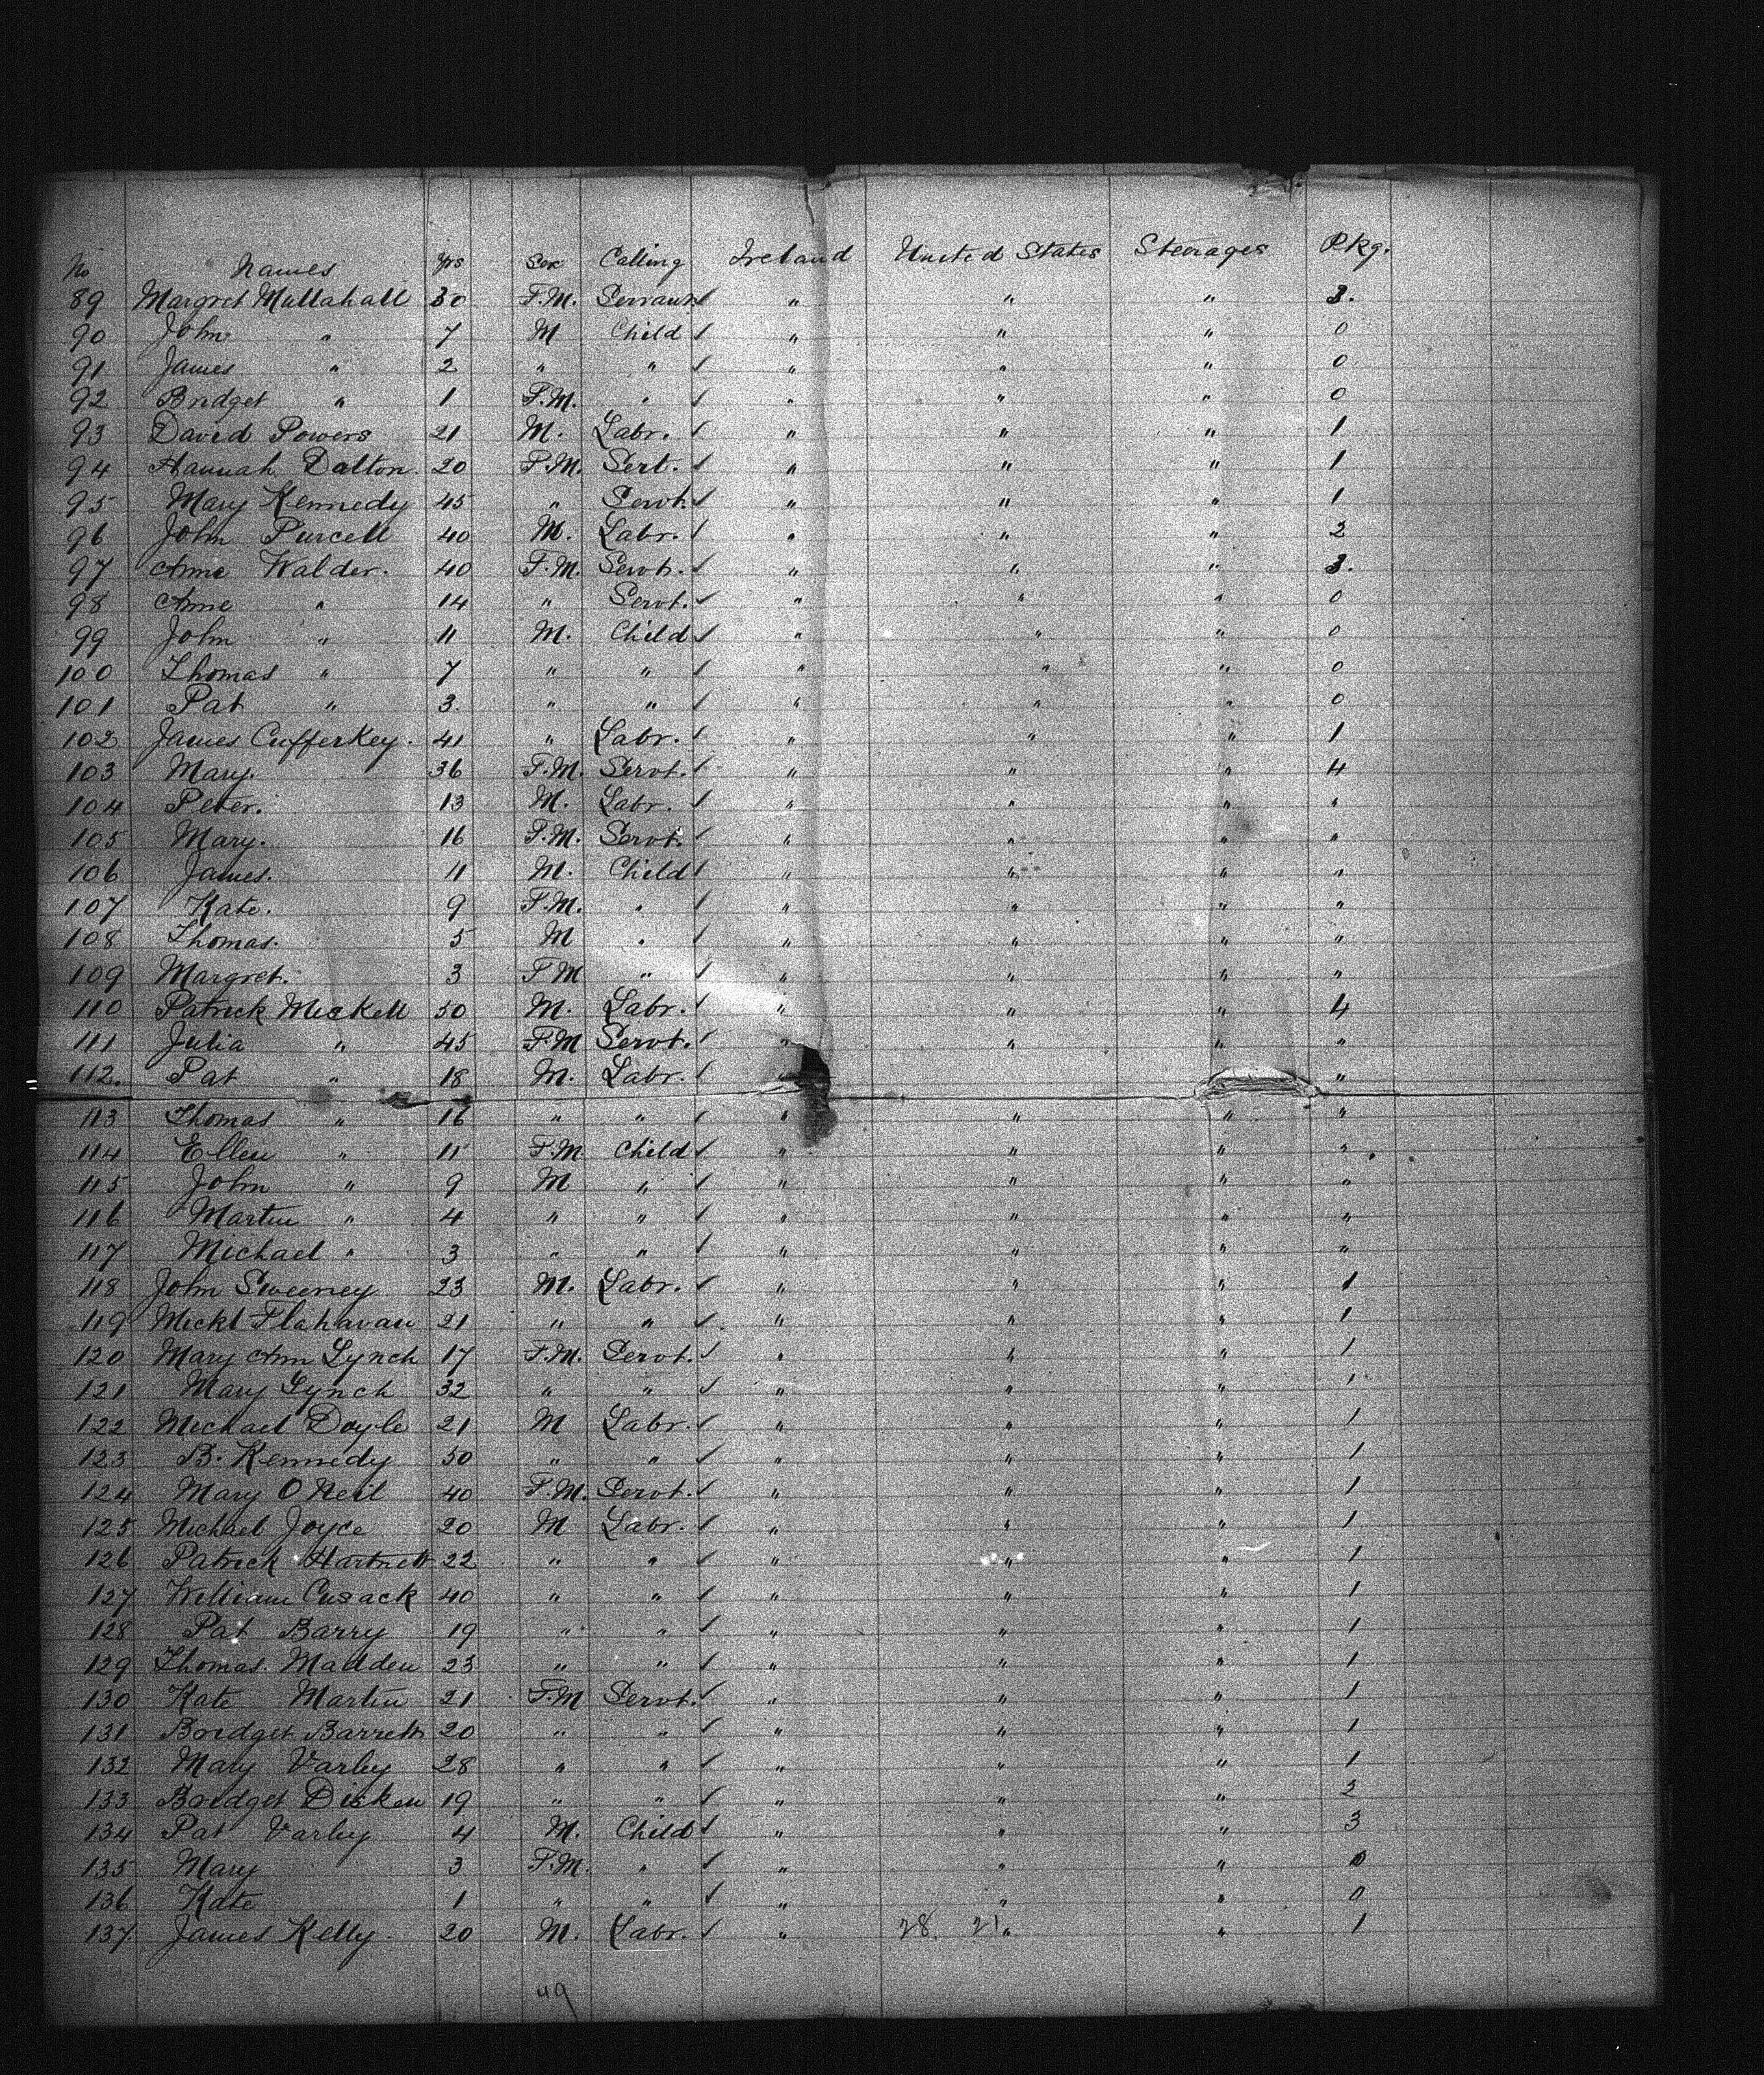 No Names Yrs Sex Calling Ireland United States Steorages Pkg.
89 Margret Mullahall 30 F.M. Servant ✓ " " " 3.
90 John " 7 M Child ✓ " " " 0
91 James " 2 " " ✓ " " " 0
92 Bridget " 1 F.M. " ✓ " " " 0
93 David Powers 21 M. Labr. ✓ " " " 1
94 Hannah Dalton. 20 F.M. Sert. ✓ " " " 1
95 Mary Kennedy 45 " Servt. ✓ " " " 1
96 John Purcell 40 M. Labr. ✓ " " " 2
97 Anne Walder. 40 F.M. Servt. ✓ " " " 3.
98 Anne " 14 " Servt. ✓ " " " 0
99 John " 11 M. Child ✓ " " " 0
100 Thomas " 7 " " ✓ " " " 0
101 Pat " 3. " " ✓ " " " 0
102 James Cufferkey. 41 " Labr. ✓ " " " 1
103 Mary. 36 F.M. Servt. ✓ " " " 4
104 Peter. 13 M. Labr. ✓ " " " "
105 Mary. 16 F.M. Servt. ✓ " " " "
106 James. 11 M. Child ✓ " " " "
107 Kate. 9 F.M. " ✓ " " " "
108 Thomas. 5 M " ✓ " " " "
109 Margret. 3 F M " ✓ " " " "
110 Patrick Mickell 50 M. Labr. ✓ " " " 4
111 Julia " 45 F.M Servt. ✓ " " " "
112. Pat " 18 M. Labr. ✓ "
113 Thomas " 16 " " ✓ " " " "
114 Ellen " 11 F.M. Child ✓ " " " "
115 John " 9 M " ✓ " " " "
116 Martin " 4 " " ✓ " " " "
117 Michael " 3 " " ✓ " " " "
118 John Sweeney 23 M. Labr. ✓ " " " 1
119 Mickl Flahavan 21 " " ✓ " " " 1
120 Mary Ann Lynch 17 F.M. Servt. ✓ " " " 1
121 Mary Lynch 32 " " ✓ " " " 1
122 Michael Doyle 21 M Labr. ✓ " " " 1
123 B. Kennedy 50 " " ✓ " " " 1
124 Mary O Neil 40 F.M. Servt. ✓ " " " 1
125 Michael Joyce 20 M Labr. ✓ " " " 1
126 Patrick Hartnett 22 " " ✓ " " " 1
127 William Cusack 40 " " ✓ " " " 1
128 Pat Barry 19 " " ✓ " " " 1
129 Thomas. Madden 23 " " ✓ " " " 1
130 Kate Martin 21 F.M Servt. ✓ " " " 1
131 Bridget Barrett 20 " " ✓ " " " 1
132 Mary Varley 28 " " ✓ " " " 1
133 Bridget Disken 19 " " ✓ " " " 2
134 Pat Varley 4 M. Child ✓ " " " 3
135 Mary 3 F.M. " ✓ " " " 0
136 Kate 1 " " ✓ " " " 0
137 James Kelly. 20 M. Labr. ✓ " 28. 21 " " 1
49